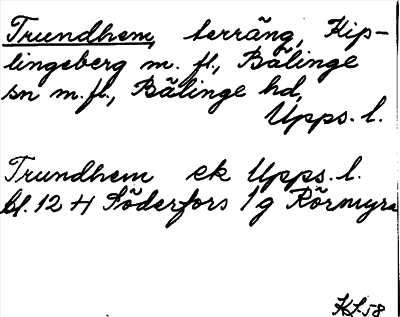 Trundhem, terräng, Kip-
lingeberg m. fl., Bälinge
sn m. fl., Bälinge hd,
Upps. l.
Trundhem ek Upps. l.
bl. 12 H Söderfors 1 g Rörmyra
58